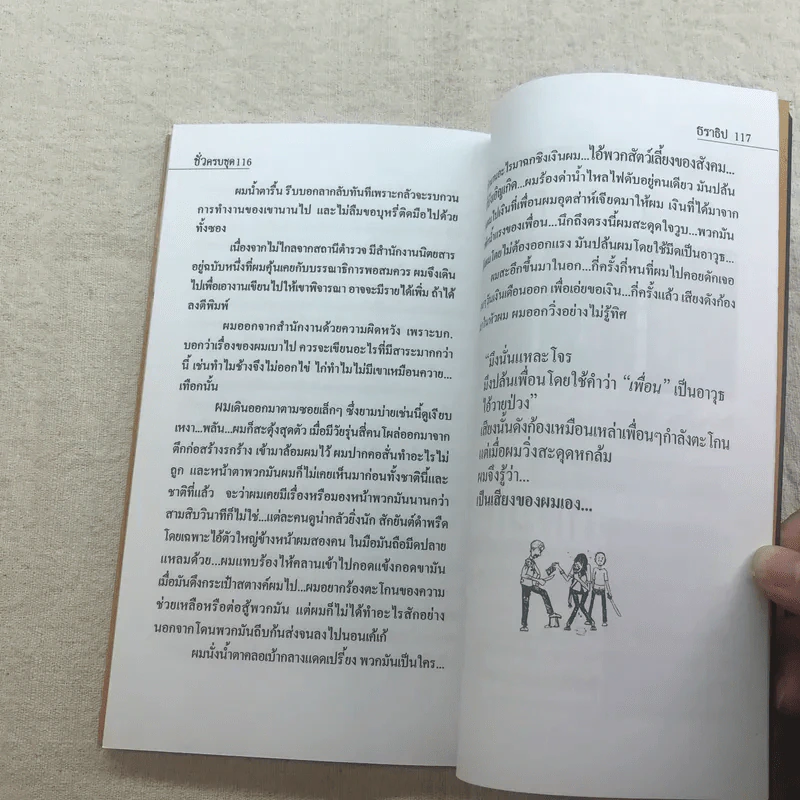 ชั่วครบชุด 116
ผมน้ำตารื้น รีบบอกลากลับทันทีเพราะกลัวจะรบกวน
การทำงานของเขานานไป และไม่ลืมขอบุหรี่ติดมือไปด้วย
ทั้งซอง
เนื่องจากไม่ไกลจากสถานีตำรวจ มีสำนักงานนิตยสาร
อยู่ฉบับหนึ่งที่ผมคุ้นเคยกับบรรณาธิการพอสมควร ผมจึงเดิน
ไปเพื่อเอางานเขียนไปให้เขาพิจารณา อาจจะมีรายได้เพิ่ม ถ้าได้
ลงตีพิมพ์
ผมออกจากสำนักงานด้วยความผิดหวัง เพราะบก.
บอกว่าเรื่องของผมเบาไป ควรจะเขียนอะไรที่มีสาระมากกว่า
นี้ เช่นทำไมช้างจึงไม่ออกไข่ ไก่ทำไมไม่มีเขาเหมือนควาย...
เทือกนั้น
ผมเดินออกมาตามซอยเล็กๆ ซึ่งยามบ่ายเช่นนี้ดูเงียบ
เหงา...พลัน...ผมก็สะดุ้งสุดตัว เมื่อมีวัยรุ่นสี่คนโผล่ออกมาจาก
ตึกก่อสร้างรกร้าง เข้ามาล้อมผมไว้ ผมปากคอสั่นทำอะไรไม่
ถูก และหน้าตาพวกมันผมก็ไม่เคยเห็นมาก่อนทั้งชาตินี้และ
ชาติที่แล้ว จะว่าผมเคยมีเรื่องหรือมองหน้าพวกมันนานกว่า
สามสิบวินาทีก็ไม่ใช่...แต่ละคนดูน่ากลัวยิ่งนัก สักยันต์ดำพรืด
โดยเฉพาะไอ้ตัวใหญ่ข้างหน้าผมสองคน ในมือมันถือมีดปลาย
แหลมด้วย...ผมแทบร้องไห้คลานเข้าไปกอดแข้งกอดขามัน
เมื่อมันดึงกระเป๋าสตางค์ผมไป...ผมอยากร้องตะโกนของความ
ช่วยเหลือหรือต่อสู้พวกมัน แต่ผมก็ไม่ได้ทำอะไรสักอย่าง
นอกจากโดนพวกมันถีบก้นส่งจนลงไปนอนเค้เก้
ผมนั่งน้ำตาคลอเบ้ากลางแดดเปรี้ยง พวกมันเป็นใคร...
ธิราธิป 117
มาฉกชิงเงินผม...ไอ้พวกสัตว์เลี้ยงของสังคม...
...ผมร้องด่าน้ำไหลไฟดับอยู่คนเดียว มันปล้น
เงินที่เพื่อนผมอุตส่าห์เจียดมาให้ผม เงินที่ได้มาจาก
แรงของเพื่อน...นึกถึงตรงนี้ผมสะดุดใจวูบ...พวกมัน
โดยไม่ต้องออกแรง มันปล้นผมโดยใช้มีดเป็นอาวุธ...
ผมสะอึกขึ้นมาในอก...กี่ครั้งกี่หนที่ผมไปคอยดักเจอ
เงินเดือนออก เพื่อเอ่ยขอเงิน...กี่ครั้งแล้ว เสียงดังก้อง
ในหัวผม ผมออกวิ่งอย่างไม่รู้ทิศ
“มึงนั่นแหละโจร
มึงปล้นเพื่อนโดยใช้คำว่า “เพื่อน” เป็นอาวุธ
ไอ้วายป่วง”
เสียงนั้นดังก้องเหมือนเหล่าเพื่อนๆกำลังตะโกน
แต่เมื่อผมวิ่งสะดุดหกล้ม
ผมจึงรู้ว่า...
เป็นเสียงของผมเอง...